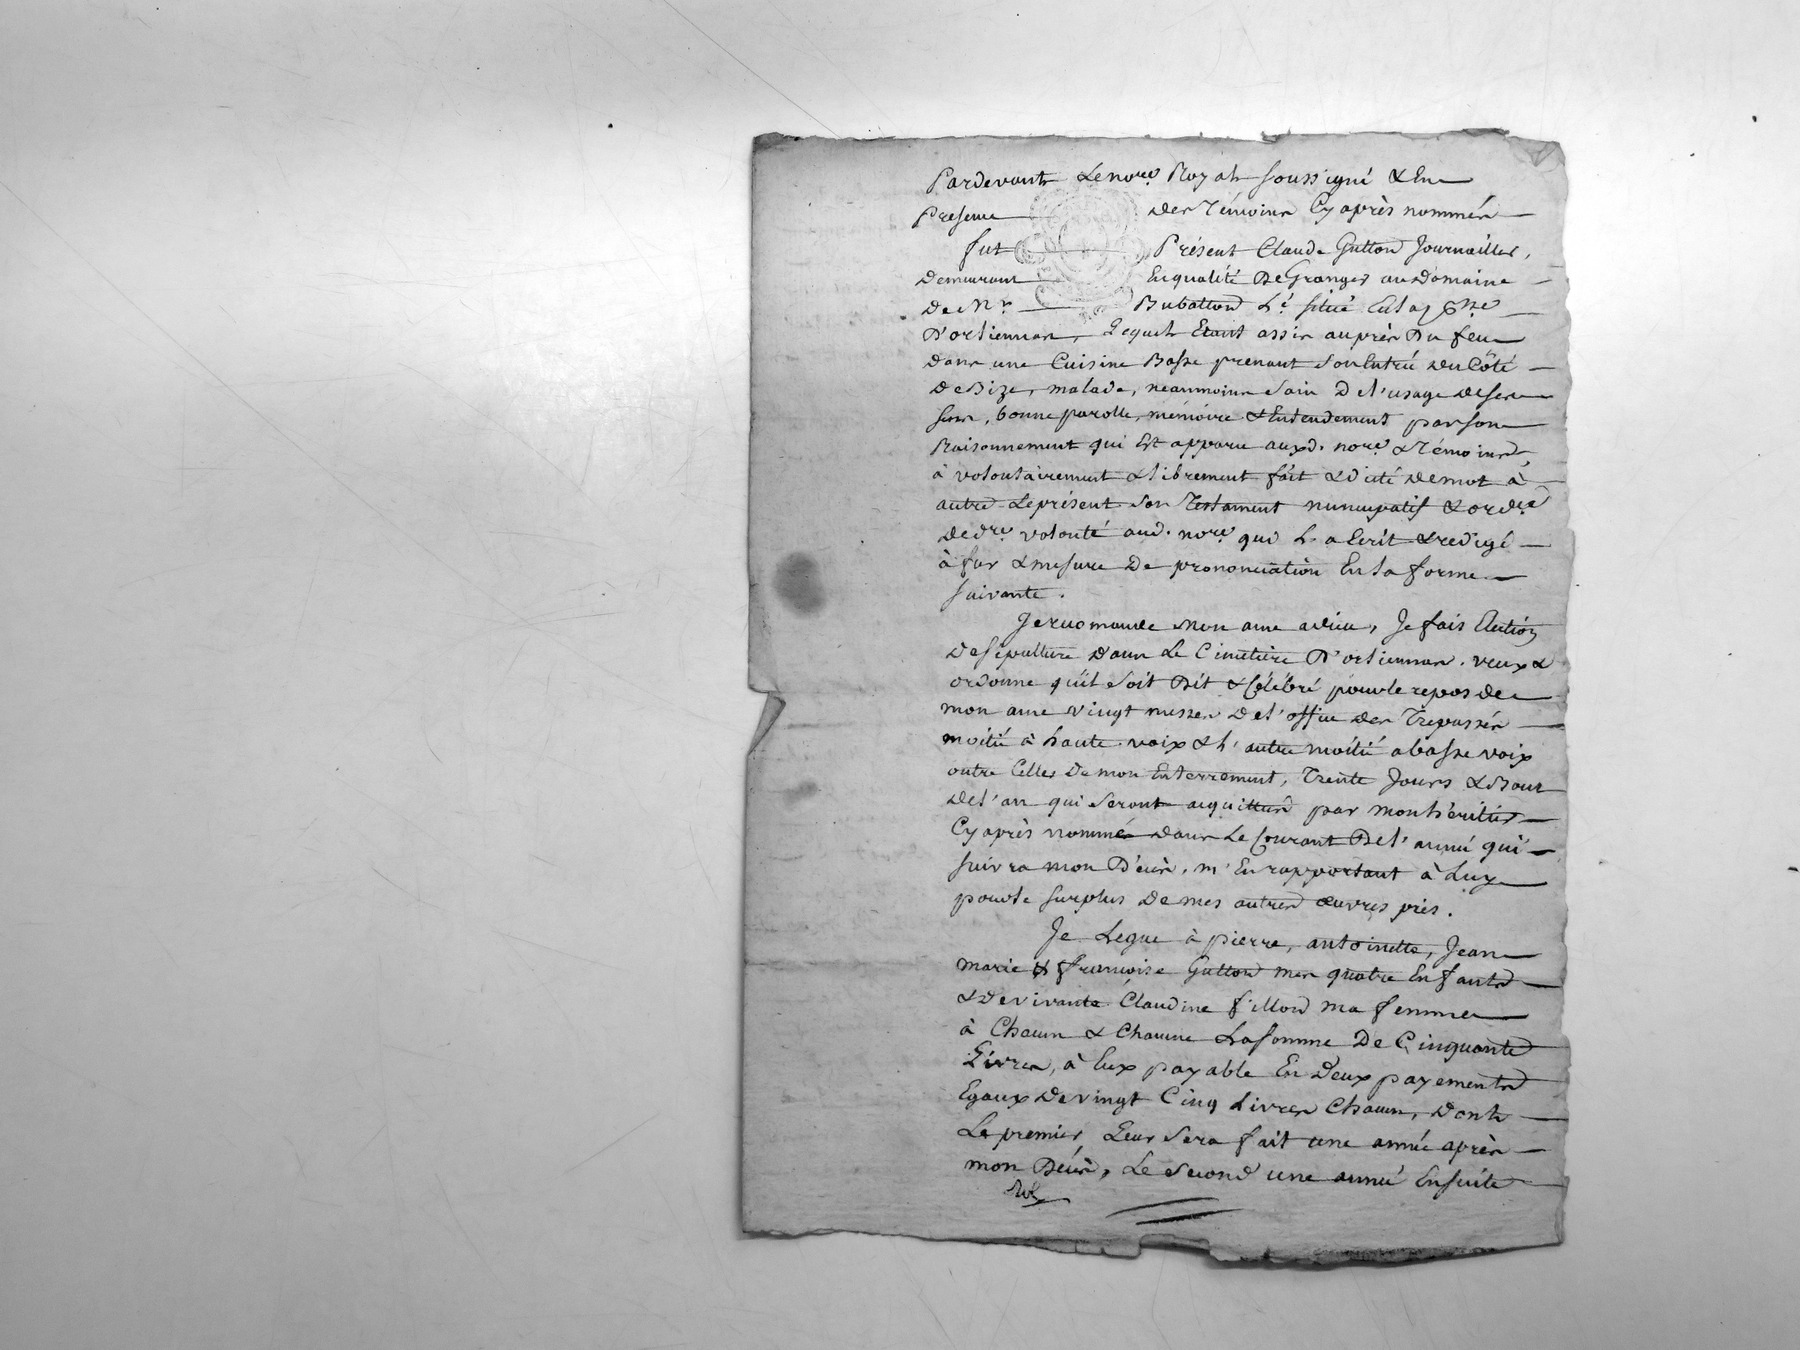 Pardevant Le nore. Royal soussigné & En
Presence des témoins Cy après nommés
fut Présent Claude Gutton Journaillier,
Demeurant En qualité De Granger au Domaine
De Mr. Bubatton situé En la psse
D'orliennas, Lequel Etant assis auprès Du feu
dans une Cuisine Basse prenant son Entrée du Côté
De Bize, malade, neanmoins sain De l'usage de ses
sens, bonne parolle, mémoire & Entendement par son
Raisonnement qui Est apparu auxd. nore & témoins,
à volontairement & librement fait & dicté de mot à
autre Le présent son Testament nuncupatif & ordce
de dre. volonté aud. nore. qui L'a Ecrit & redigé
à fur & mesure De prononciation En la forme
suivante.
Je recomande mon ame a dieu, Je fais Election
de sépulture dans Le Cimetière D'orliennas. veux &
ordonne qu'il soit Dit & Célébré pour le repos de
mon ame vingt messes De l'office des Trepassés
moitié à haute voix & l'autre moitié a basse voix
outre Celles De mon Enterrement, Trente Jours & Bout
de l'an qui seront acquittées par mon héritier
Cy après nommé dans Le Courant De l'année qui
suivra mon Décès, m'En rapportant à Luy
pour le surplus De mes autres œuvres pies.
Je Legue à pierre, antoinette, Jean
marie & francoise Gutton mes quatre Enfants
& de vivante Claudine fillon ma femme
à Chacun & Chacune La somme De Cinquante
Livres, à Eux payable En Deux payements
Egaux De vingt Cinq Livres Chacun, dont
Le premier Leur sera fait une année après
mon Décès, Le second une année Ensuite